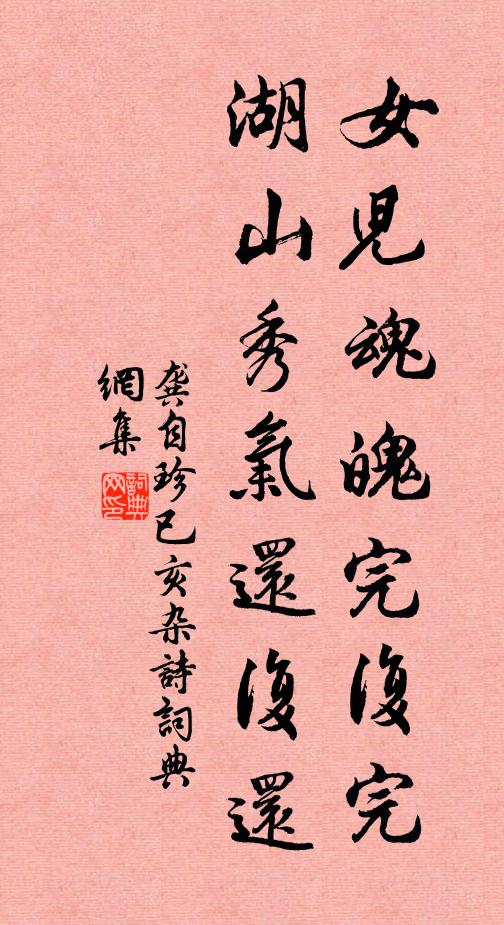 女兒魂魄完復完
湖山秀氣還復還
龔自珍已亥杂詩詞典
網集
詞典
网印